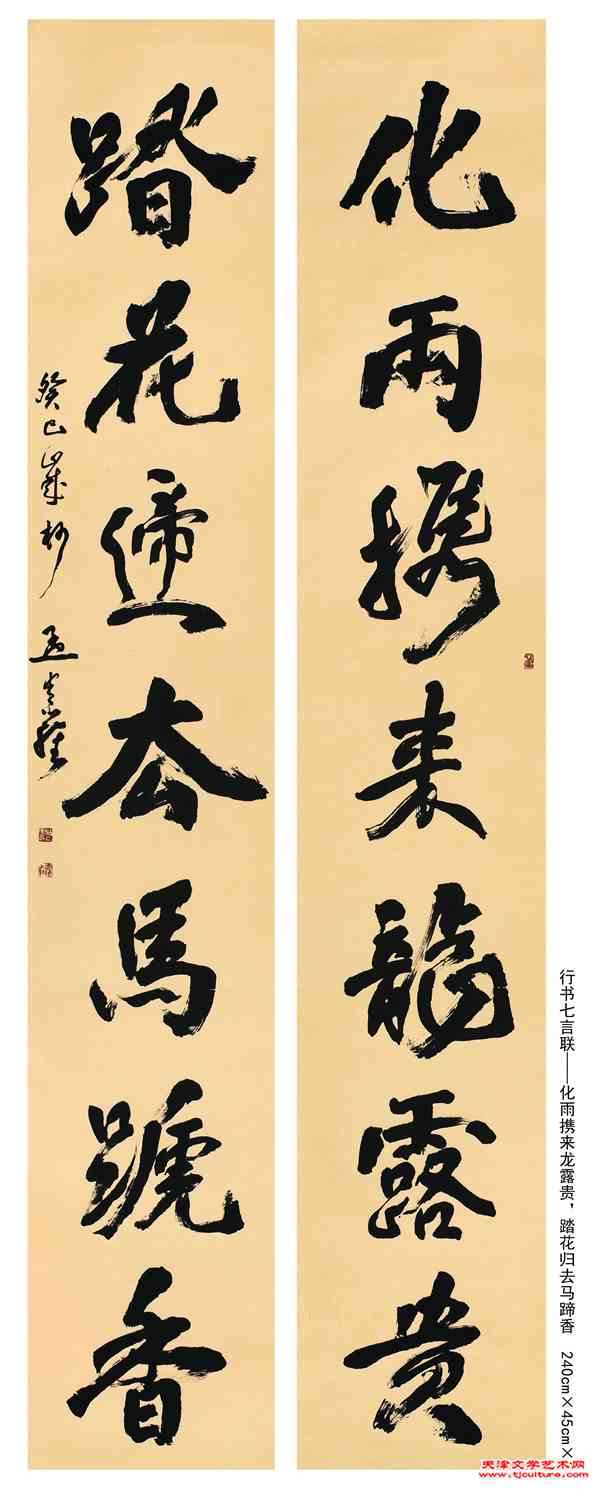 化雨攜来龍露貴
踏花歸去馬蹏香
癸巳歲杪 孟
行书七言联——化雨携来龙露贵，踏花归去马蹄香 240cm×45cm×
天津文学艺术网
www.tjculture.com